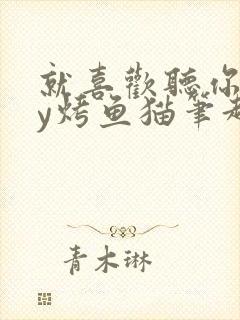 就喜歡聽你
y烤鱼猫筆趣
青木琳